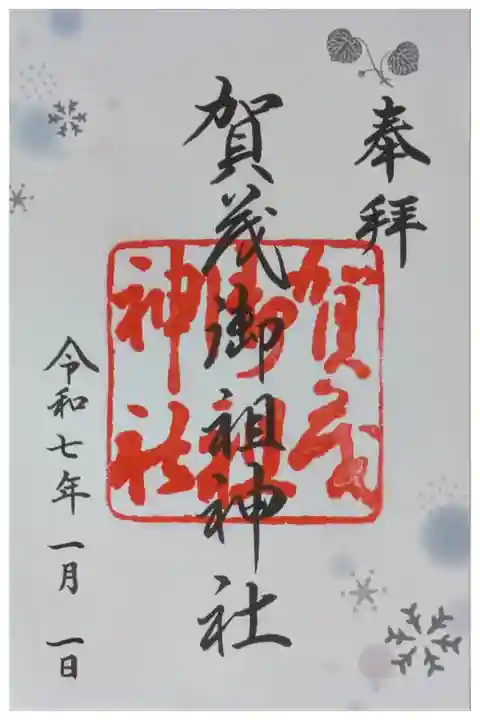 奉拝
賀茂御祖神社
賀茂
御祖
神社
令和七年 一月 一日